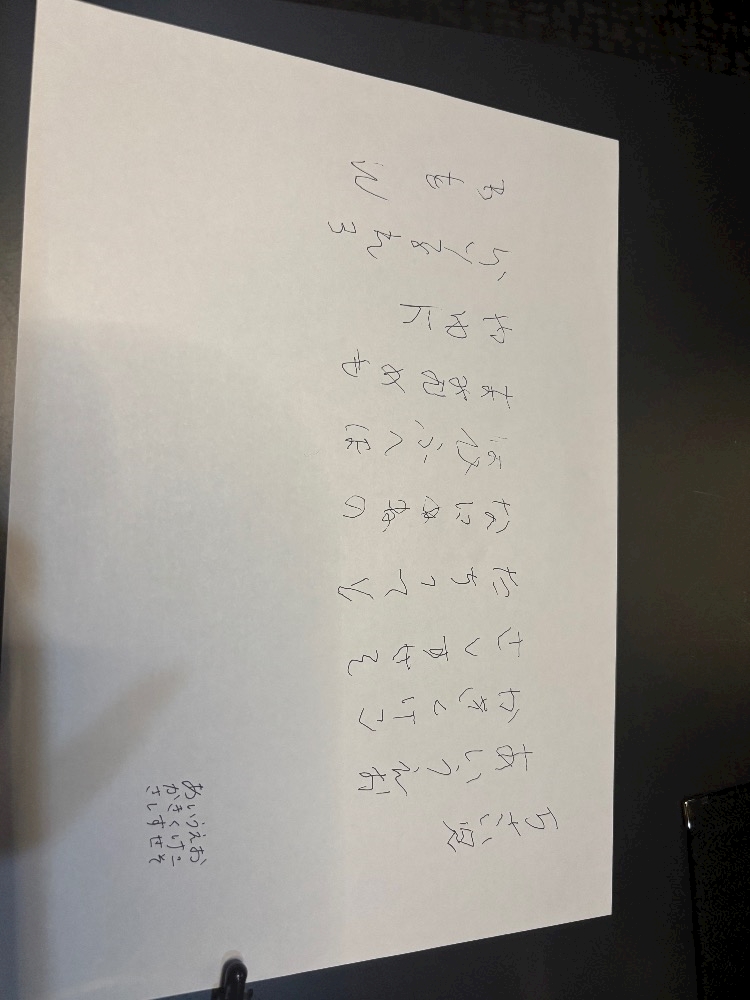 あいうえお
かきくけこ
さしすせそ
たちつてと
なにぬねの
はひふへほ
まみむめも
やゆよ
らりるれろ
わをん
あいうえお
かきくけこ
さしすせそ